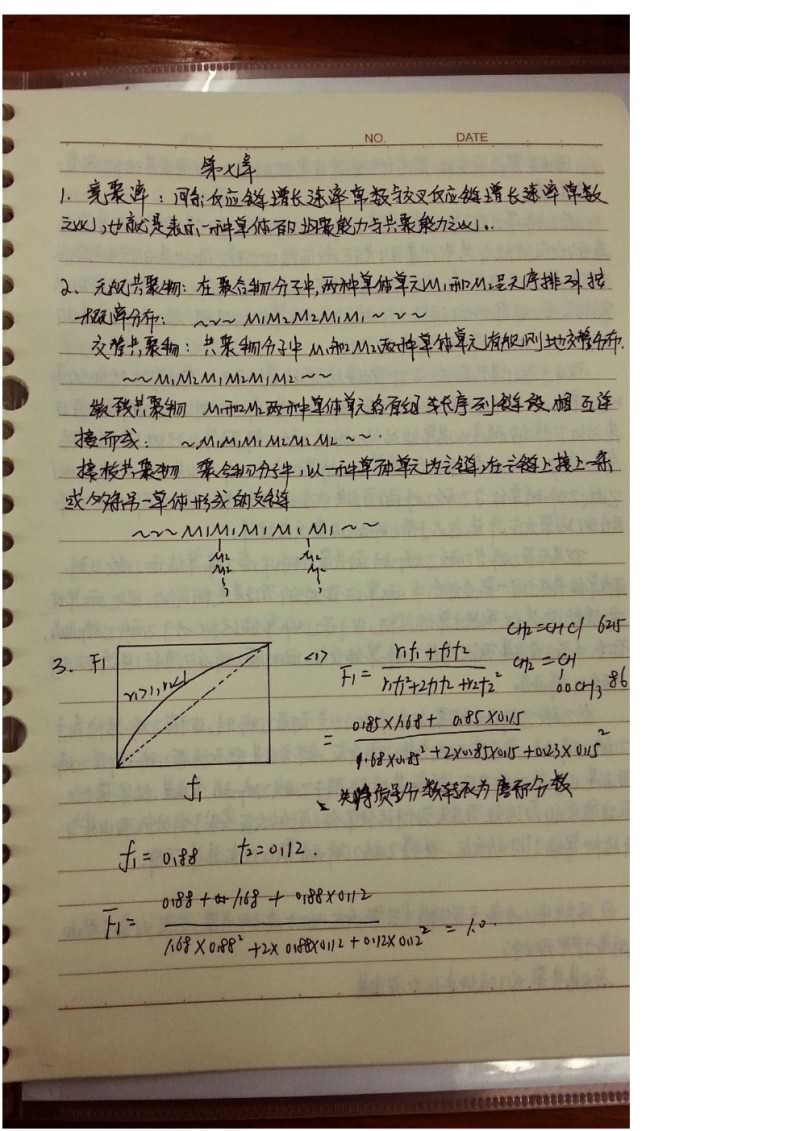 NO. DATE
第七章
1. 竞聚率：同系反应链增长速率常数与交叉反应链增长速率常数
之比,也就是表示一种单体的均聚能力与共聚能力之比。
2、无规共聚物：在聚合物分子中,两种单体单元M₁和M₂呈无序排列,按
概率分布： ~~~ M₁M₂M₂M₁M₁ ~ ~ ~
交替共聚物：共聚物分子中M₁和M₂两种单体单元有规则地交替分布.
~~M₁M₂M₁M₂M₁M₂ ~~
嵌段共聚物 M₁和M₂两种单体单元各自组成长序列链段相互连
接而成： ~M₁M₁M₁M₂M₂M₂ ~~.
接枝共聚物 聚合物分子中,以一种单体单元为主链,在主链上接上一条
或多条另一单体形成的支链
~~~ M₁M₁M₁M₁M₁ ~~
M₂ M₂
M₂ M₂
3. F₁ r₁>1,r₂<1
f₁
<1> F₁ = (r₁f₁ + f₁f₂) / (r₁f₁²+2f₁f₂+r₂f₂²)
CH₂=CHCl 62.5
CH₂=CH
OOCH₃ 86
= (0.85×1.68 + 0.85×0.15) / (1.68×0.85²+2×0.85×0.15+0.23×0.15²)
先将质量分数转化为摩尔分数
f₁ = 0.88 f₂=0.12.
F₁ = (0.88 + 1.68 + 0.88×0.12) / (1.68×0.88²+2×0.88×0.12+0.12×0.12²) = 1.0.